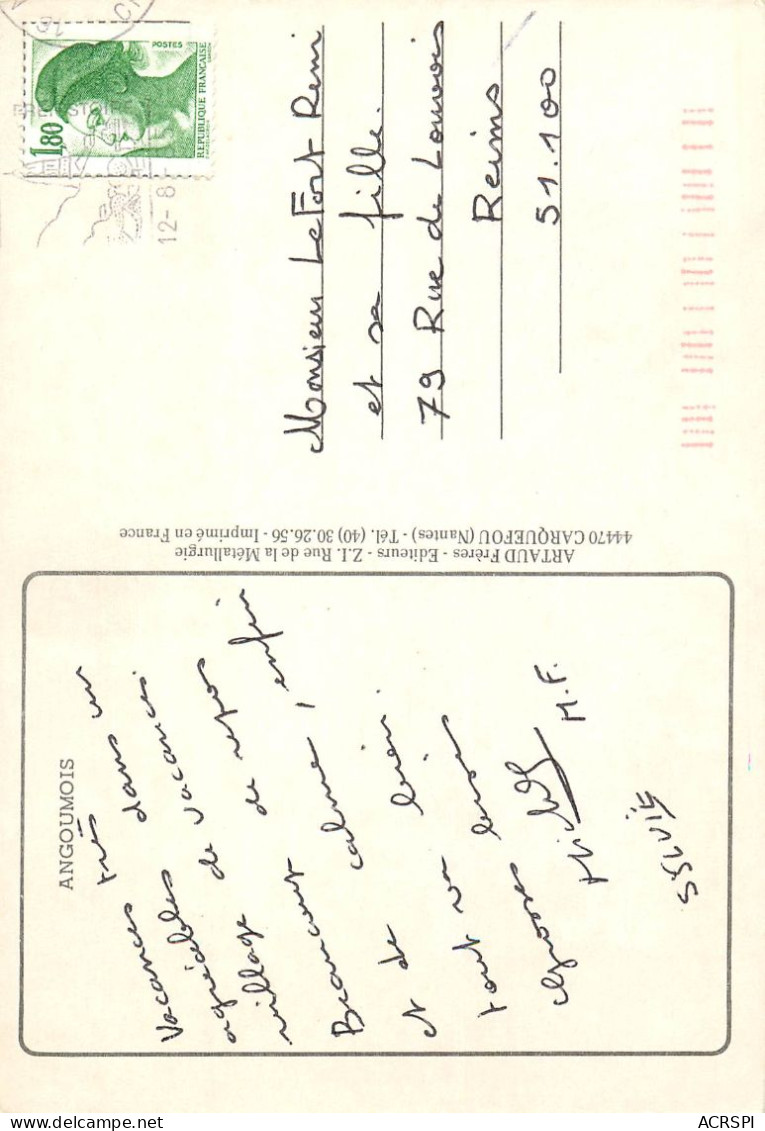 ANGOUMOIS
Vacances très
agréables dans un
village de vacances.
Beaucoup de repos
et de calme, enfin
tout va bien.
Grosses bises
M.F.
SYLVIE
ARTAUD Frères - Editeurs - Z.I. Rue de la Métallurgie
44470 CARQUEFOU (Nantes) - Tél. (40) 30.26.56 - Imprimé en France
POSTES
1,80
REPUBLIQUE FRANÇAISE
PREHISTOIRE
12- 8
Monsieur Le Fort Remi
et sa fille.
79 Rue de Louvois
Reims
51.100
ACRSPI